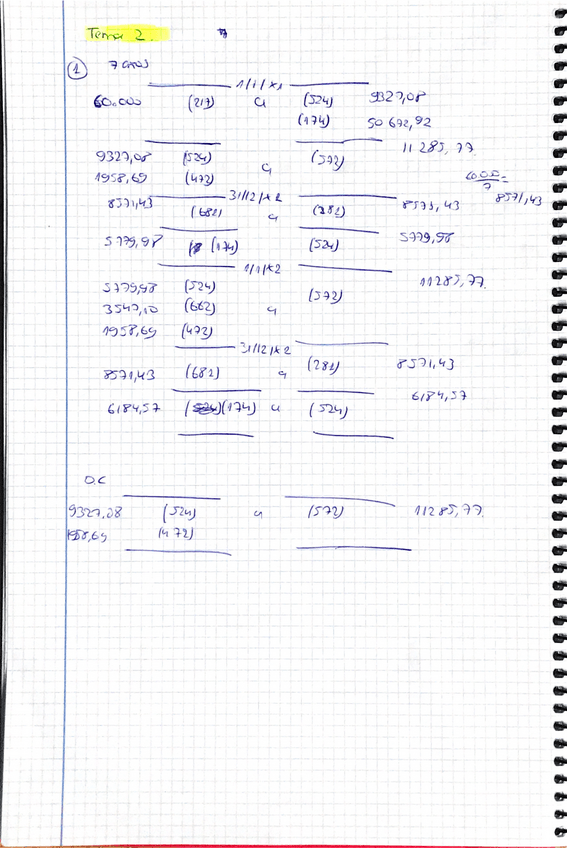 Tema 2.
1 7 años
1/1/x1
60.000 (217) a (524) 9327,08
(174) 50 672,92
9327,08 (524) a (572) 11 285,77
1958,69 (472)
60.000/7 = 8571,43
31/12/x2
8571,43 (681) a (281) 8571,43
5779,98 (174) (524) 5779,98
1/1/x2
5779,98 (524) a (572) 11285,77
3547,10 (662)
1958,69 (472)
31/12/x2
8571,43 (681) a (281) 8571,43
6184,57 (174) a (524) 6184,57
O.C
9327,08 (524) a (572) 11285,77
1958,69 (472)